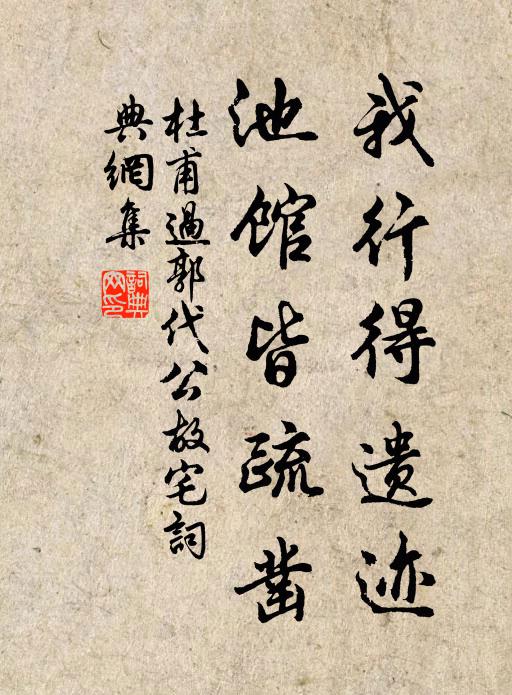 我行得遗迹
池馆皆疏凿
杜甫過郭代公故宅詞
典網集
詞典
网印